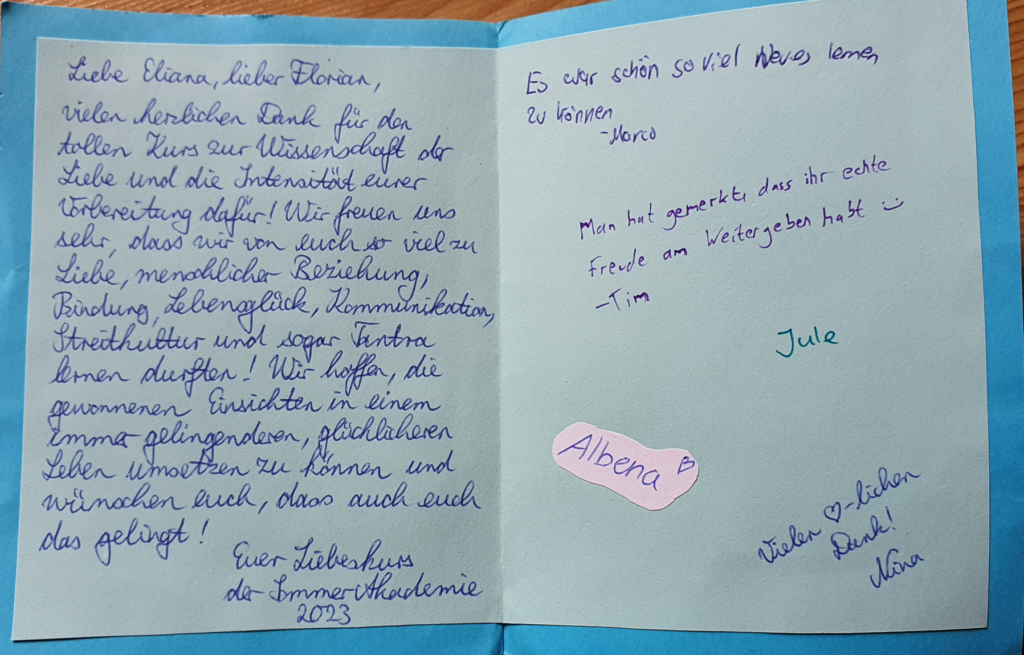 Liebe Eliana, lieber Florian,
vielen herzlichen Dank für den
tollen Kurs zur Wissenschaft der
Liebe und die Intensität eurer
Vorbereitung dafür! Wir freuen uns
sehr, dass wir von euch so viel zu
Liebe, menschlicher Beziehung,
Bindung, Lebensglück, Kommunikation,
Streitkultur und sogar Tantra
lernen durften! Wir hoffen, die
gewonnenen Einsichten in einem
immer gelingenderen, glücklicheren
Leben umsetzen zu können und
wünschen euch, dass auch euch
das gelingt!
Euer Liebeskurs
der ImmerAkademie
2023
Es war schön so viel Neues lernen
zu können
-Marco
Man hat gemerkt, dass ihr echte
Freude am Weitergeben habt :)
-Tim
Jule
Albena
Vielen ♡-lichen
Dank!
Nina